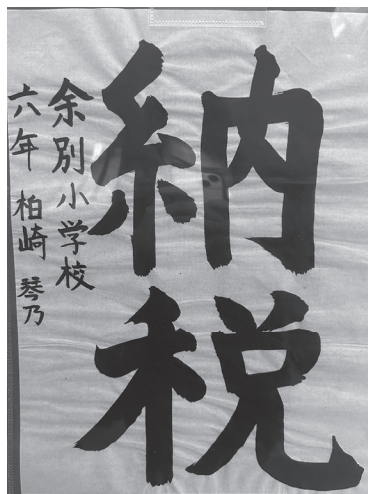 納税
余別小学校
六年 柏崎 琴乃